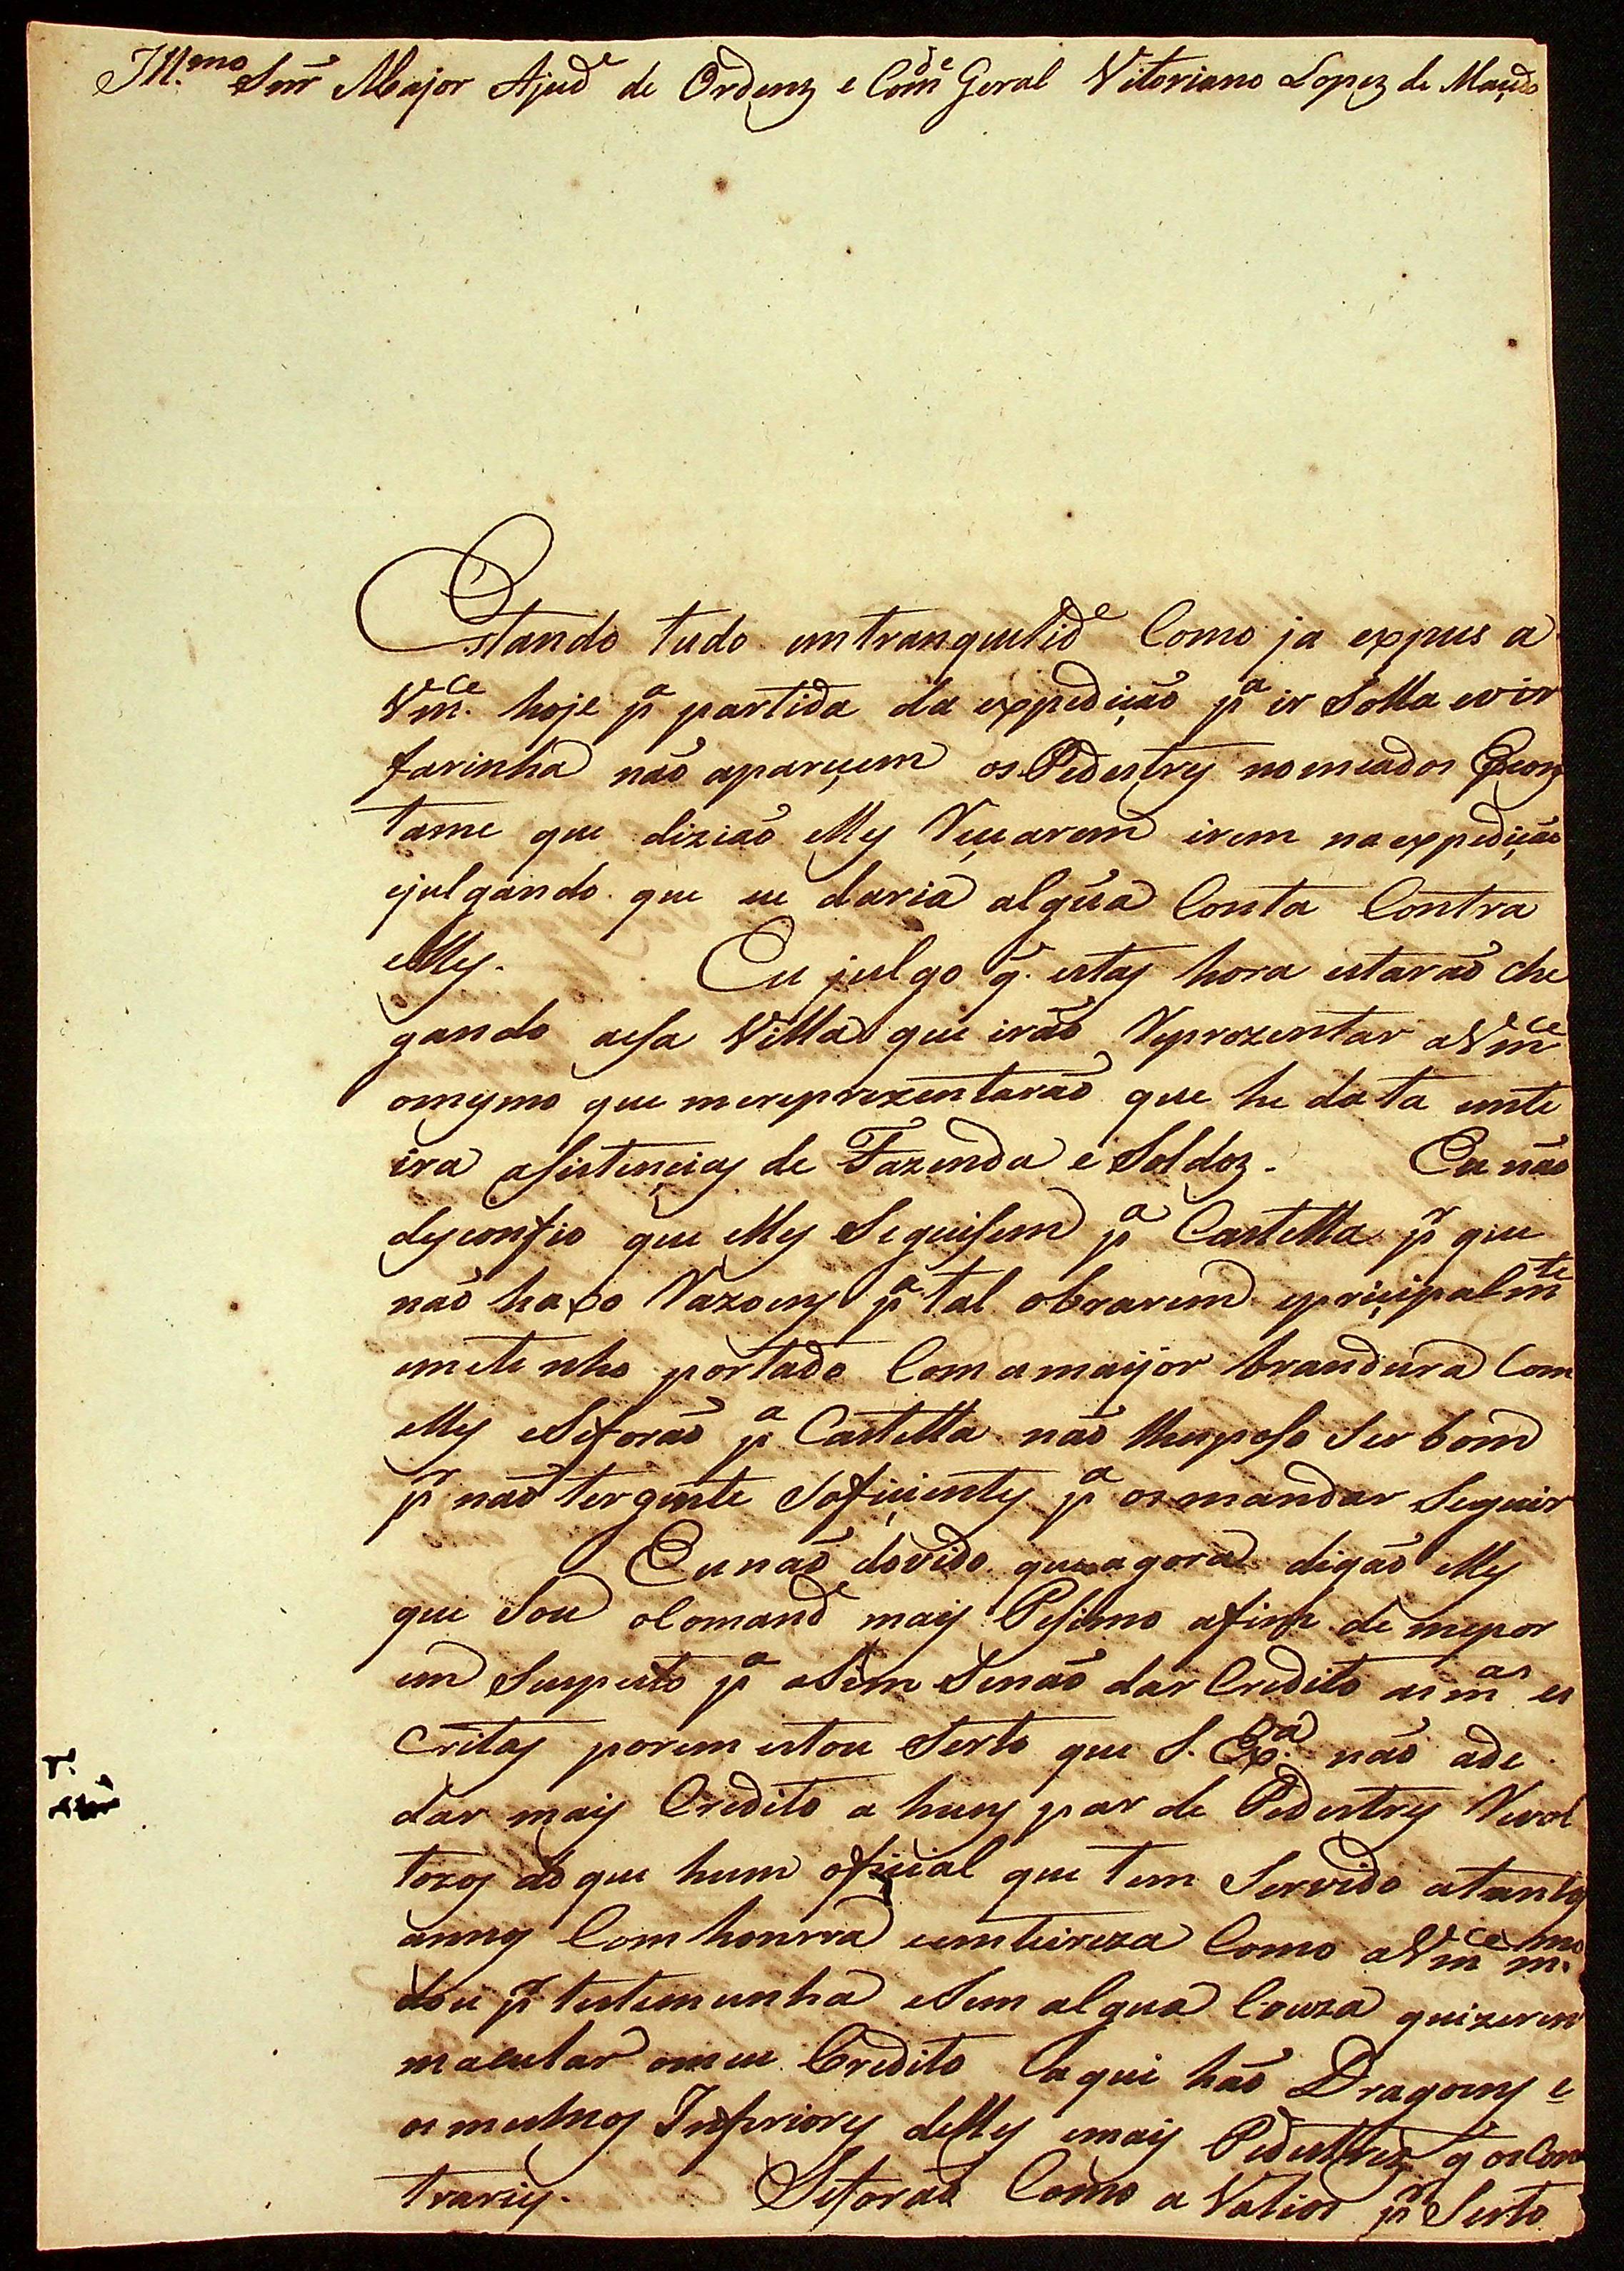 Ill.mo Snr Major Ajud.e de Ordenz e Com.de Geral Vitoriano Lopez de Maçedo
Estando tudo emtranquelid.e Como ja expus a
Vm.ce hoje p.a partida da expedição p.a ir Solla evir
farinha não apareçem os Pedestres nomeados Econs
tame que dizião elles Reçearem irem na expedição
ejulgando que eu daria algũa Conta Contra
elles. Eu julgo q. estas hora estarão che
gando aesa Villa que irão Reprezentar aVm.ce
omesmo que mereprezentarão que he data ente
ira asistençias de Fazenda e Soldoz. Eu não
desconfio que elles Seguisem p.a Castella p.r que
não haxo Razoens p.a tal obrarem epriçipalm.te
emetenho portado Com amaijor brandura Com
elles eSeforão p.a Castella não lhesposo Ser bom
p.r não tergente Sofiçientes p.a osmandar Seguir
Eu não dovido que agora digão elles
que Sou oComand.e mais Pesimo afim de mepor
em Suspeito p.a aSim Senão dar Credito as m.as es
Critas porem estou Serto que S. Ex.a não ade
dar mais Credito a huns par de Pedestres Revol
tozos do que hum ofiçial que tem Servido atantos
annos Com honrra eemteireza Como aVm.ce m.mo
dou p.r testemunha eSem algua Couza quizerem
macular omeu Credito aqui hão Dragoens e
osmesmos Inferiores delles emais Pedestrez q osCon
traries. Seforão Como a Valios p.r Serto